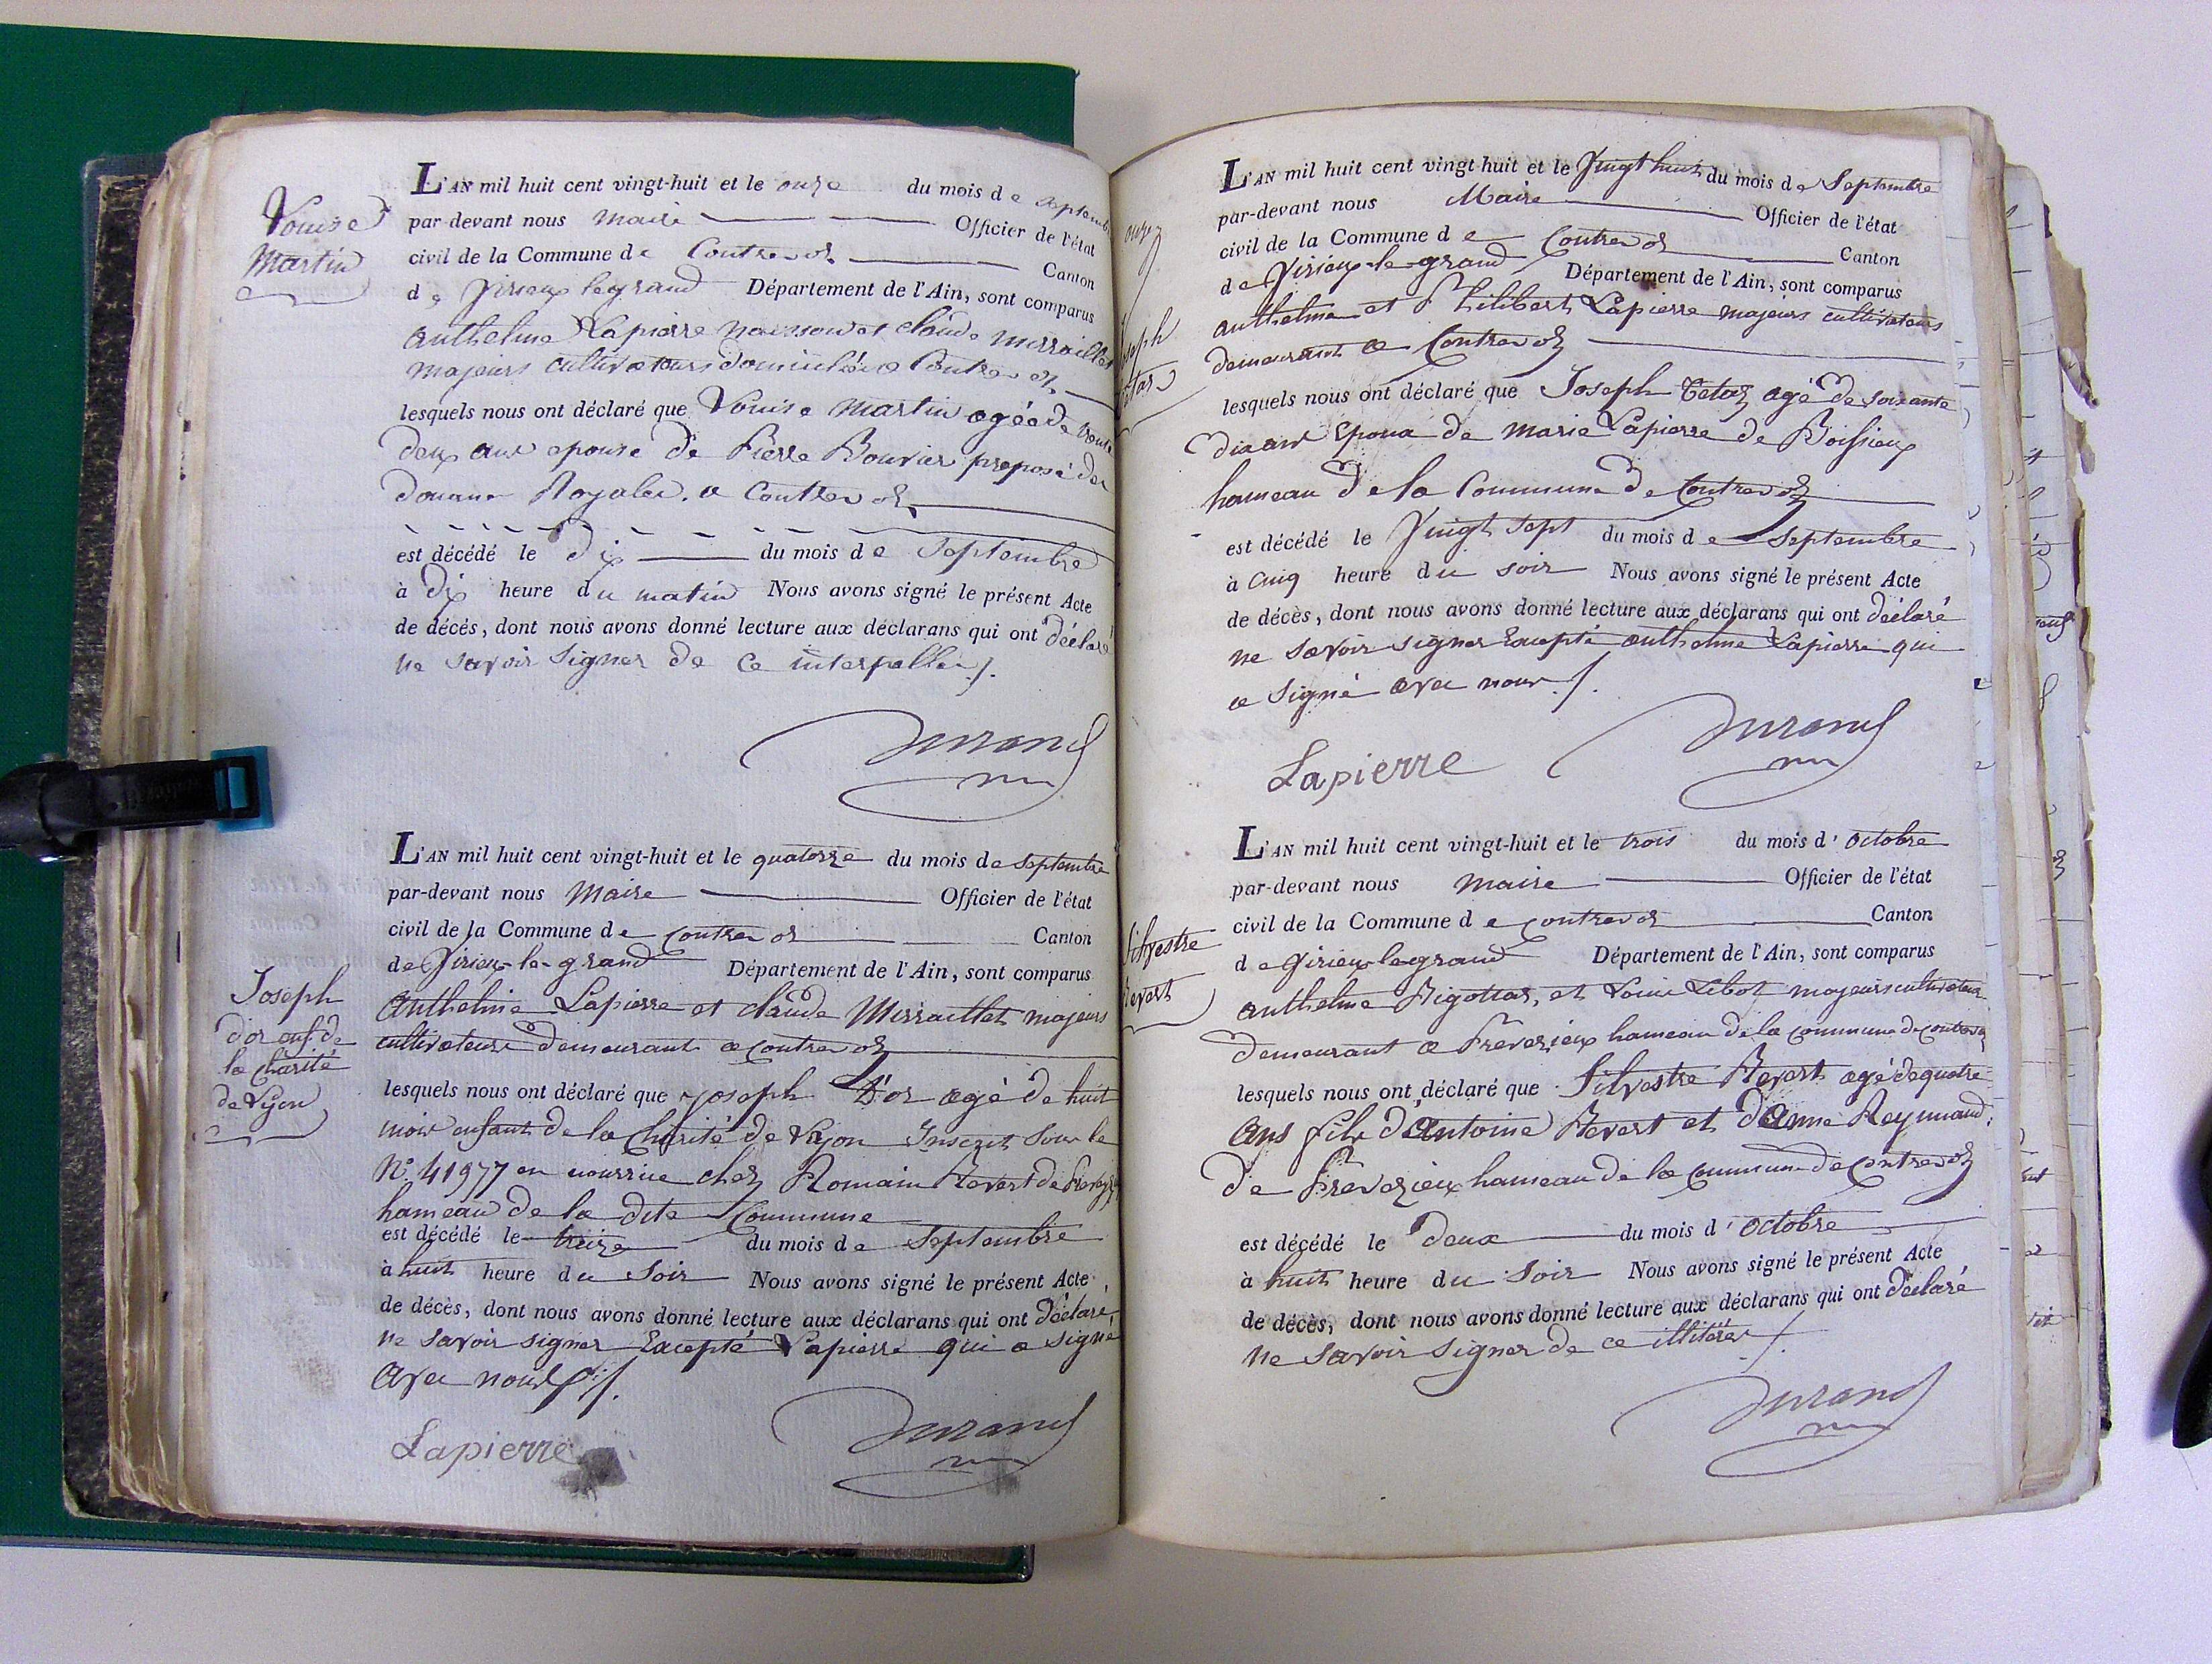 Louise
Martin
L'AN mil huit cent vingt-huit et le onze du mois de Septemb
par-devant nous Maire Officier de l'état
civil de la Commune de Contrevoz Canton
de Virieux legrand Département de l'Ain, sont comparus
Anthelme Lapierre et Claude Mirraillet
majeurs cultivateurs domiciliés a Contrevoz
lesquels nous ont déclaré que Louise Martin agée de trente
deux ans epouse de Pierre Bouvier preposé des
douanes Royales. a Contrevoz
est décédé le dix du mois de Septembre
à dix heure du matin Nous avons signé le présent Acte
de décès, dont nous avons donné lecture aux déclarans qui ont déclaré
ne savoir signer de ce interpellés ./.
Durand
Joseph
d'or enf. de
la charité
de Lyon
L'AN mil huit cent vingt-huit et le quatorze du mois de Septembre
par-devant nous Maire Officier de l'état
civil de la Commune de Contrevoz Canton
de Virieux-le-grand Département de l'Ain, sont comparus
Anthelme Lapierre et Claude Mirraillet majeurs
cultivateurs demeurant a Contrevoz
lesquels nous ont déclaré que Joseph D'or agé de huit
mois enfant de la Charité de Lyon Inscrit sous le
N.º 41977 en nourrice chez Romain Revert de Prevezieu
hameau de la dite Commune
est décédé le treize du mois de Septembre
à huit heure du Soir Nous avons signé le présent Acte
de décès, dont nous avons donné lecture aux déclarans qui ont déclaré
ne savoir signer Excepté Lapierre qui a signé
avec nous ./.
Lapierre Durand
oseph
L'AN mil huit cent vingt-huit et le Vingt huit du mois de Septembre
par-devant nous Maire Officier de l'état
civil de la Commune de Contrevoz Canton
de Virieux-le-grand Département de l'Ain, sont comparus
Anthelme et Philibert Lapierre majeurs cultivateurs
demeurant a Contrevoz
lesquels nous ont déclaré que Joseph Tetaz agé de soixante
dix ans Epoux de Marie Lapierre de Boissieux
hameau de la Commune de Contrevoz
est décédé le Vingt sept du mois de Septembre
à cinq heure du soir Nous avons signé le présent Acte
de décès, dont nous avons donné lecture aux déclarans qui ont déclaré
ne savoir signer Excepté anthelme Lapierre qui
a signé avec nous ./.
Lapierre Durand
Silvestre
Revert
L'AN mil huit cent vingt-huit et le trois du mois d' Octobre
par-devant nous Maire Officier de l'état
civil de la Commune de Contrevoz Canton
de Virieux-legrand Département de l'Ain, sont comparus
Anthelme Bigottaz, et Louis majeurs cultivateurs
demeurant a Prevezieux hameau de la Commune de Contrevoz
lesquels nous ont déclaré que Silvestre Revert agé de quatre
ans fils d'Antoine Revert et d'Anne Reymand
de Prevezieux hameau de la Commune de Contrevoz
est décédé le deux du mois d' Octobre
à huit heure du Soir Nous avons signé le présent Acte
de décès, dont nous avons donné lecture aux déclarans qui ont déclaré
ne savoir signer de ce illitérés ./.
Durand